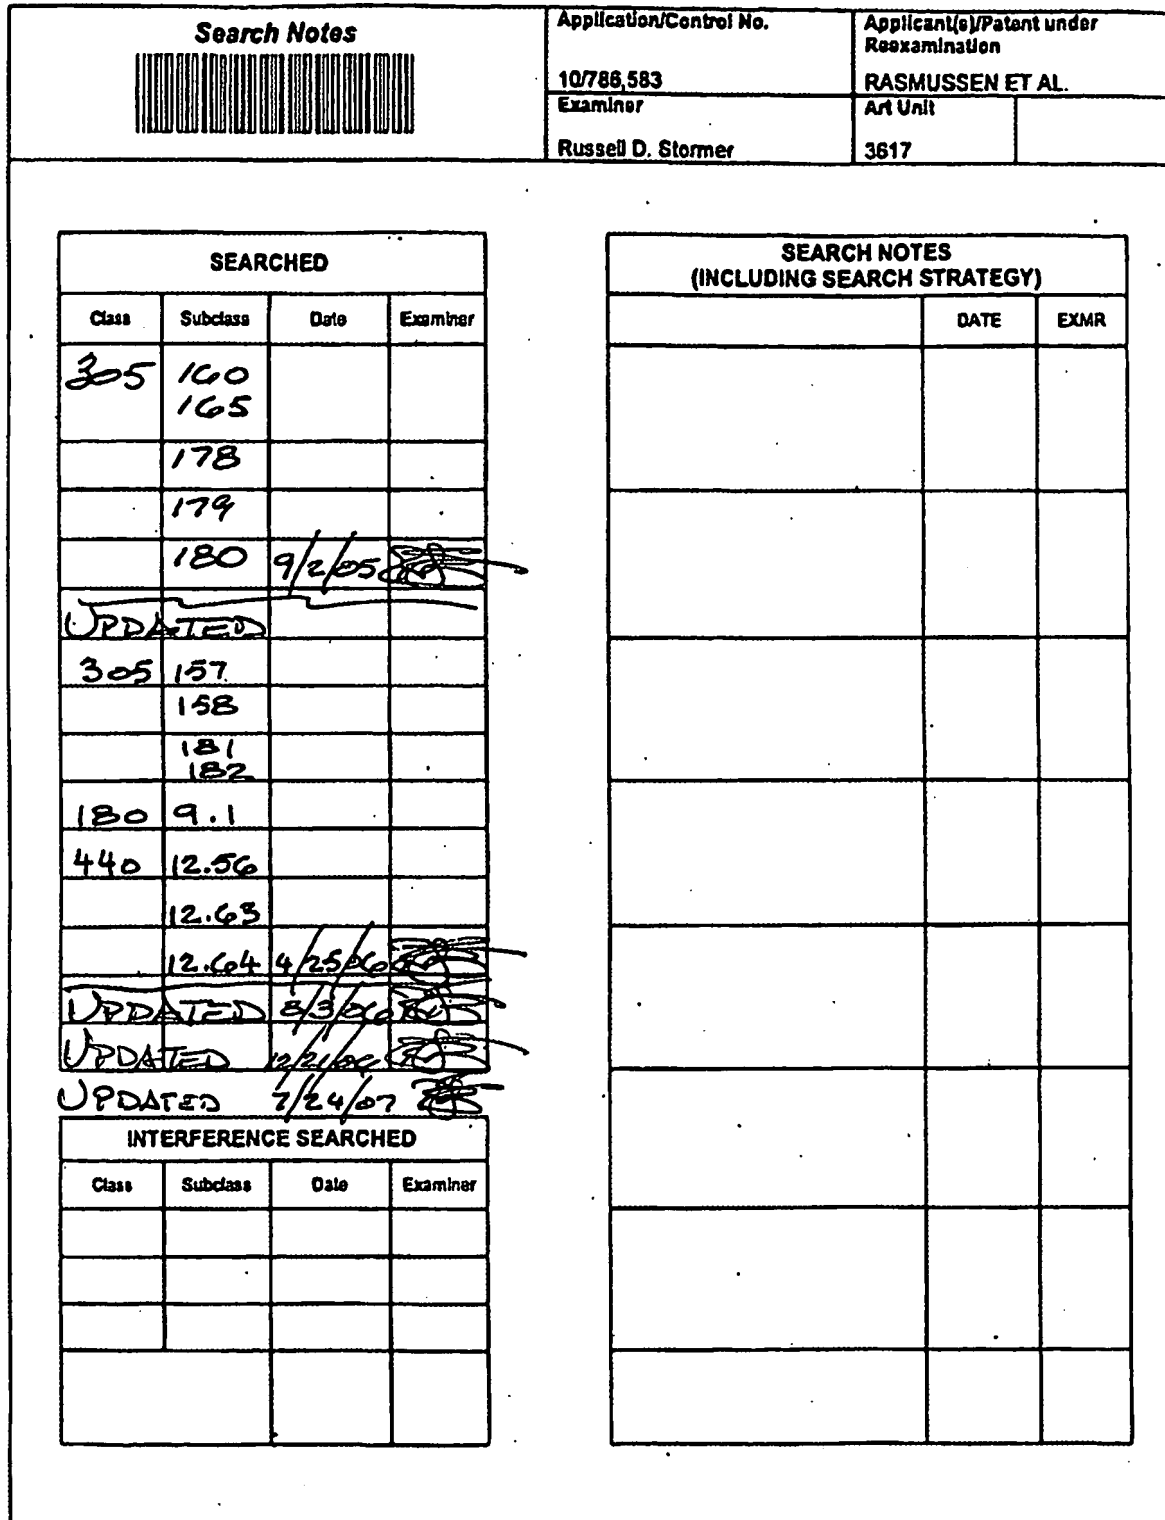 Search Notes
Application/Control No.
Applicant(s)/Patent under
Reexamination
10/786,583
RASMUSSEN ET AL.
Examiner
Art Unit
Russell D. Stormer
3617
SEARCHED
Class Subclass Date Examiner
305 160
165
178
179
180 9/2/05
UPDATED
305 157
158
181
182
180 9.1
440 12.56
12.63
12.64 4/25/06
UPDATED 8/3/06
UPDATED 12/21/06
UPDATED 7/24/07
INTERFERENCE SEARCHED
Class Subclass Date Examiner
SEARCH NOTES
(INCLUDING SEARCH STRATEGY)
DATE EXMR